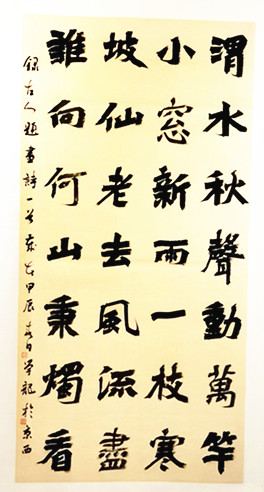 渭水秋聲動萬竿
小窓新雨一枝寒
坡仙老去風流盡
誰向何山秉燭看
録古人題畫詩一首 歲在甲辰春日 於京西